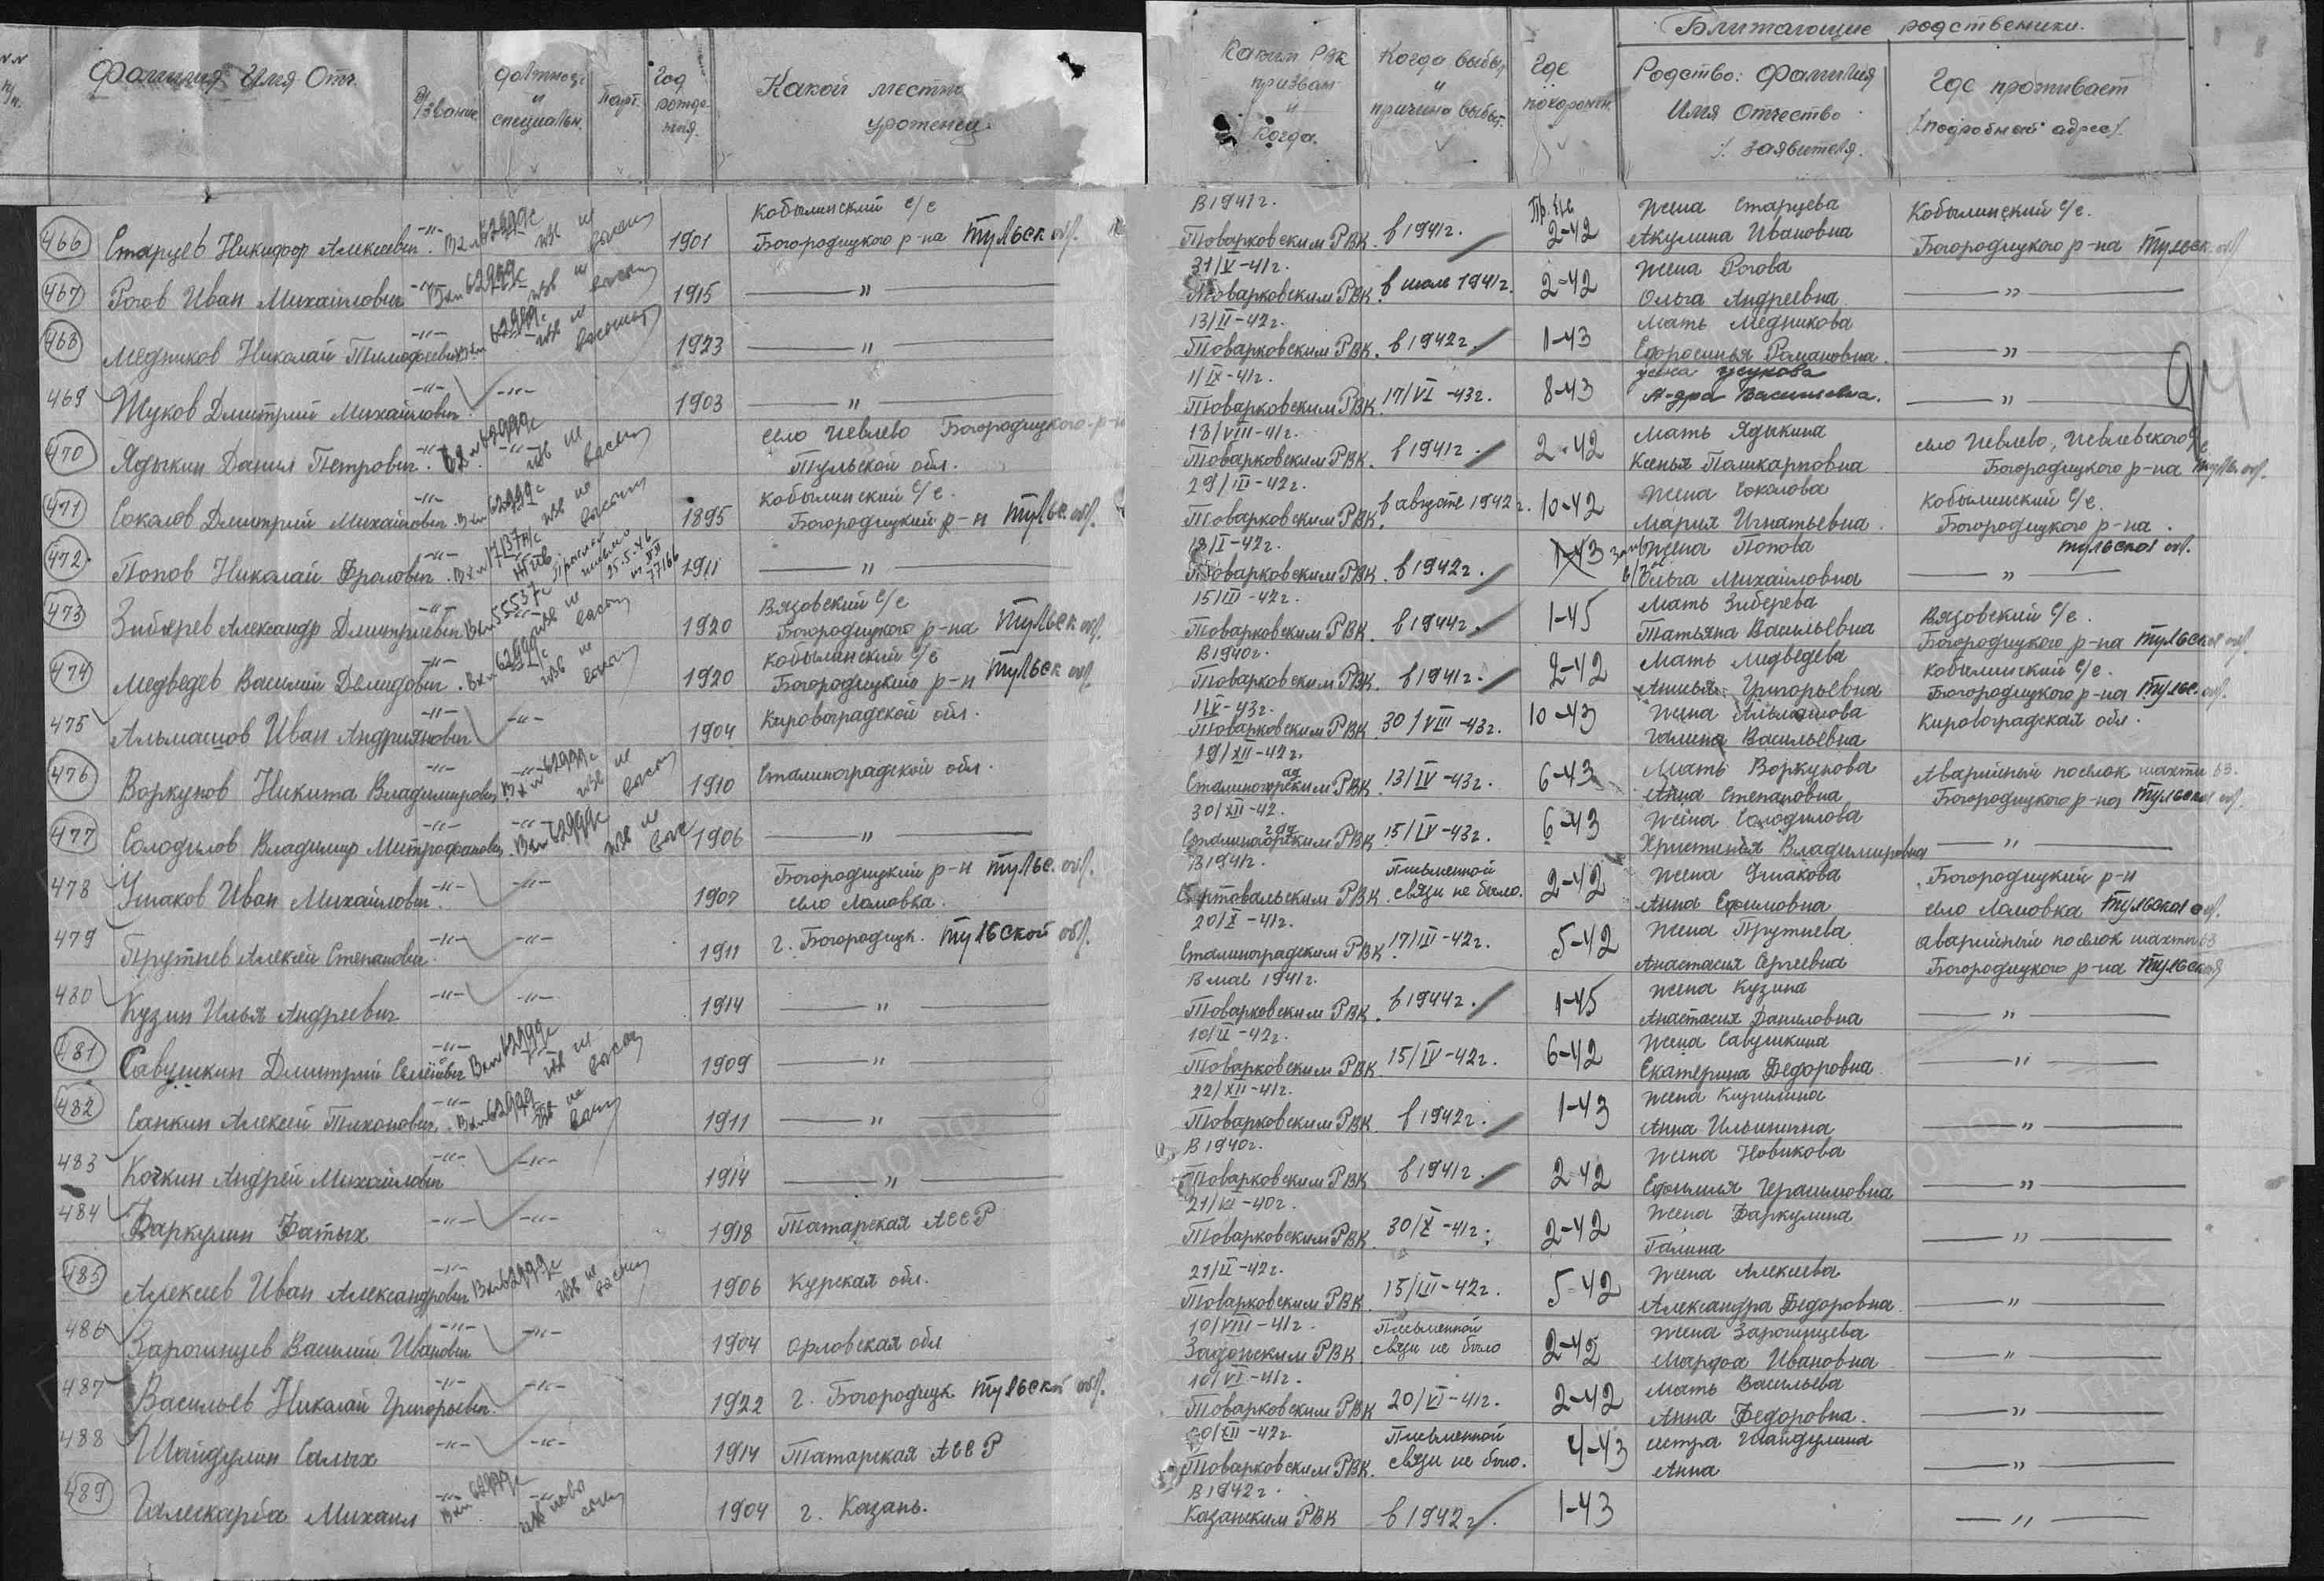 N.N п/п. Фамилия Имя Отч. В/звание должность и специальн. Парт. Год рожде-ния. Какой местн. уроженец. Каким РВК призван и Когда. Когда выбыл и причина выбыт. Где похоронен.
Ближайшие родственики.
Родство: Фамилия Имя Отчество /. заявителя. Где проживает /подробный адрес/.
466 Старцев Никифор Алексеевич. -"- Вх 62999с изв 1901 Кобылинский с/с Богородицкого р-на Тульск обл. В 1941г. Товарковским РВК. в 1941г. 2-42 Жена Старцева Акулина Ивановна Кобылинский с/с. Богородицкого р-на Тульск обл
467 Рогов Иван Михайлович -"- 62999с изв 1915 -"- 31/V-41г. Товарковским РВК. в июле 1941г. 2-42 Жена Рогова Ольга Андреевна -"-
468 Медников Николай Тимофеевич -"- 62999с изв 1923 -"- 13/II-42г. Товарковским РВК. в 1942г. 1-43 Мать Медникова Ефросинья Романовна. -"-
469 Жуков Дмитрий Михайлович -"- -"- 1903 -"- 1/IX-41г. Товарковским РВК. 17/VI-43г. 8-43 жена Жукова А-дра Васильевна. -"-
470 Ядыкин Данил Петрович. -"- 62999с изв село Иевлево Богородицкого р-н Тульской обл. 18/VIII-41г. Товарковским РВК. в 1941г. 2-42 Мать Ядыкина Ксенья Поликарповна село Иевлево, Иевлевского с/с Богородицкого р-на Тульс. обл.
471 Соколов Дмитрий Михайлович. -"- 62999с изв 1895 Кобылинский с/с. Богородицкий р-н Тульс. обл. 29/III-42г. Товарковским РВК. в августе 1942г. 10-42 Жена Соколова Мария Игнатьевна. Кобылинский с/с. Богородицкого р-на. Тульской обл.
472. Попов Николай Фролович. -"- 17137с 25-5-46 77166 1911 -"- 18/I-42г. Товарковским РВК. в 1942г. 1-43 Жена Попова Ольга Михайловна -"-
473 Зиберев Александр Дмитриевич -"- 55537с изв 1920 Вязовский с/с Богородицкого р-на Тульск обл. 15/III-42г. Товарковским РВК. в 1944г. 1-45 Мать Зиберева Татьяна Васильевна Вязовский с/с. Богородицкого р-на Тульской обл.
474 Медведев Василий Демидович. -"- 62999с изв 1920 Кобылинский с/с Богородицкий р-н Тульск обл. В 1940г. Товарковским РВК. в 1941г. 2-42 Мать Медведева Анисья Григорьевна Кобылинский с/с. Богородицкого р-на Тульс. обл.
475 Альмашов Иван Андриянович -"- -"- 1904 Кировоградской обл. 1/V-43г. Товарковским РВК. 30/VIII-43г. 10-43 Жена Альмашова Галина Васильевна Кировоградская обл.
476 Воркунов Никита Владимирович -"- 62999с изв 1910 Сталиноградской обл. 19/XII-42г. Сталиногорским РВК 13/IV-43г. 6-43 Мать Воркунова Анна Степановна Аварийный поселок шахты 63. Богородицкого р-на Тульской обл.
477 Солодилов Владимир Митрофанович. -"- 62999с изв 1906 -"- 30/XII-42. Сталиногорским РВК 15/IV-43г. 6-43 Жена Солодилова Христинья Владимировна -"-
478 Ушаков Иван Михайлович. -"- -"- 1907 Богородицкий р-н Тульс. обл. село Ломовка. В 1941г. Сортовальским РВК. Письменной связи не было. 2-42 Жена Ушакова Анна Ефимовна Богородицкий р-н село Ломовка Тульской обл.
479 Прутнев Алексей Степанович -"- -"- 1911 г. Богородицк. Тульской обл. 20/X-41г. Сталиноградским РВК 17/III-42г. 5-42 Жена Прутнева Анастасия Сергеевна Аварийный поселок шахты 63 Богородицкого р-на Тульской
480 Кузин Илья Андреевич -"- -"- 1914 -"- В мае 1941г. Товарковским РВК. в 1944г. 1-45 Жена Кузина Анастасия Даниловна -"-
481 Савушкин Дмитрий Семенович -"- 62999с изв 1909 -"- 10/II-42г. Товарковским РВК 15/IV-42г. 6-42 Жена Савушкина Екатерина Федоровна -"-
482 Санкин Алексей Тихонович. -"- 62999 изв 1911 -"- 22/XII-41г. Товарковским РВК. в 1942г. 1-43 Жена Анна Ильинична -"-
483 Кочкин Андрей Михайлович -"- -"- 1914 -"- В 1940г. Товарковским РВК. в 1941г. 2-42 Жена Новикова Ефимия Герасимовна -"-
484 Фаркулин Фатых -"- -"- 1918 Татарская АССР 21/VI-40г. Товарковским РВК. 30/X-41г. 2-42 Жена Фаркулина Галина -"-
485 Алексеев Иван Александрович -"- 62999с изв 1906 Курская обл. 21/II-42г. Товарковским РВК. 15/III-42г. 5-42 Жена Алексеева Александра Федоровна -"-
486 Зарочинцев Василий Иванович -"- -"- 1904 Орловская обл 10/VIII-41г. Задонским РВК. Письменной связи не было 2-42 Жена Зарочинцева Марфа Ивановна -"-
487 Васильев Николай Григорьевич. -"- -"- 1922 г. Богородицк Тульской обл. 10/VI-41г. Товарковским РВК 20/VI-41г. 2-42 Мать Васильева Анна Федоровна. -"-
488 Шайдулин Салых -"- -"- 1914 Татарская АССР 20/XII-42г Товарковским РВК. Письменной связи не было. 4-43 сестра Шайдулина Анна -"-
489 Галескарба Михаил -"- 62999с изв 1904 г. Казань. В 1942г. Казанским РВК в 1942г. 1-43 -"-
94